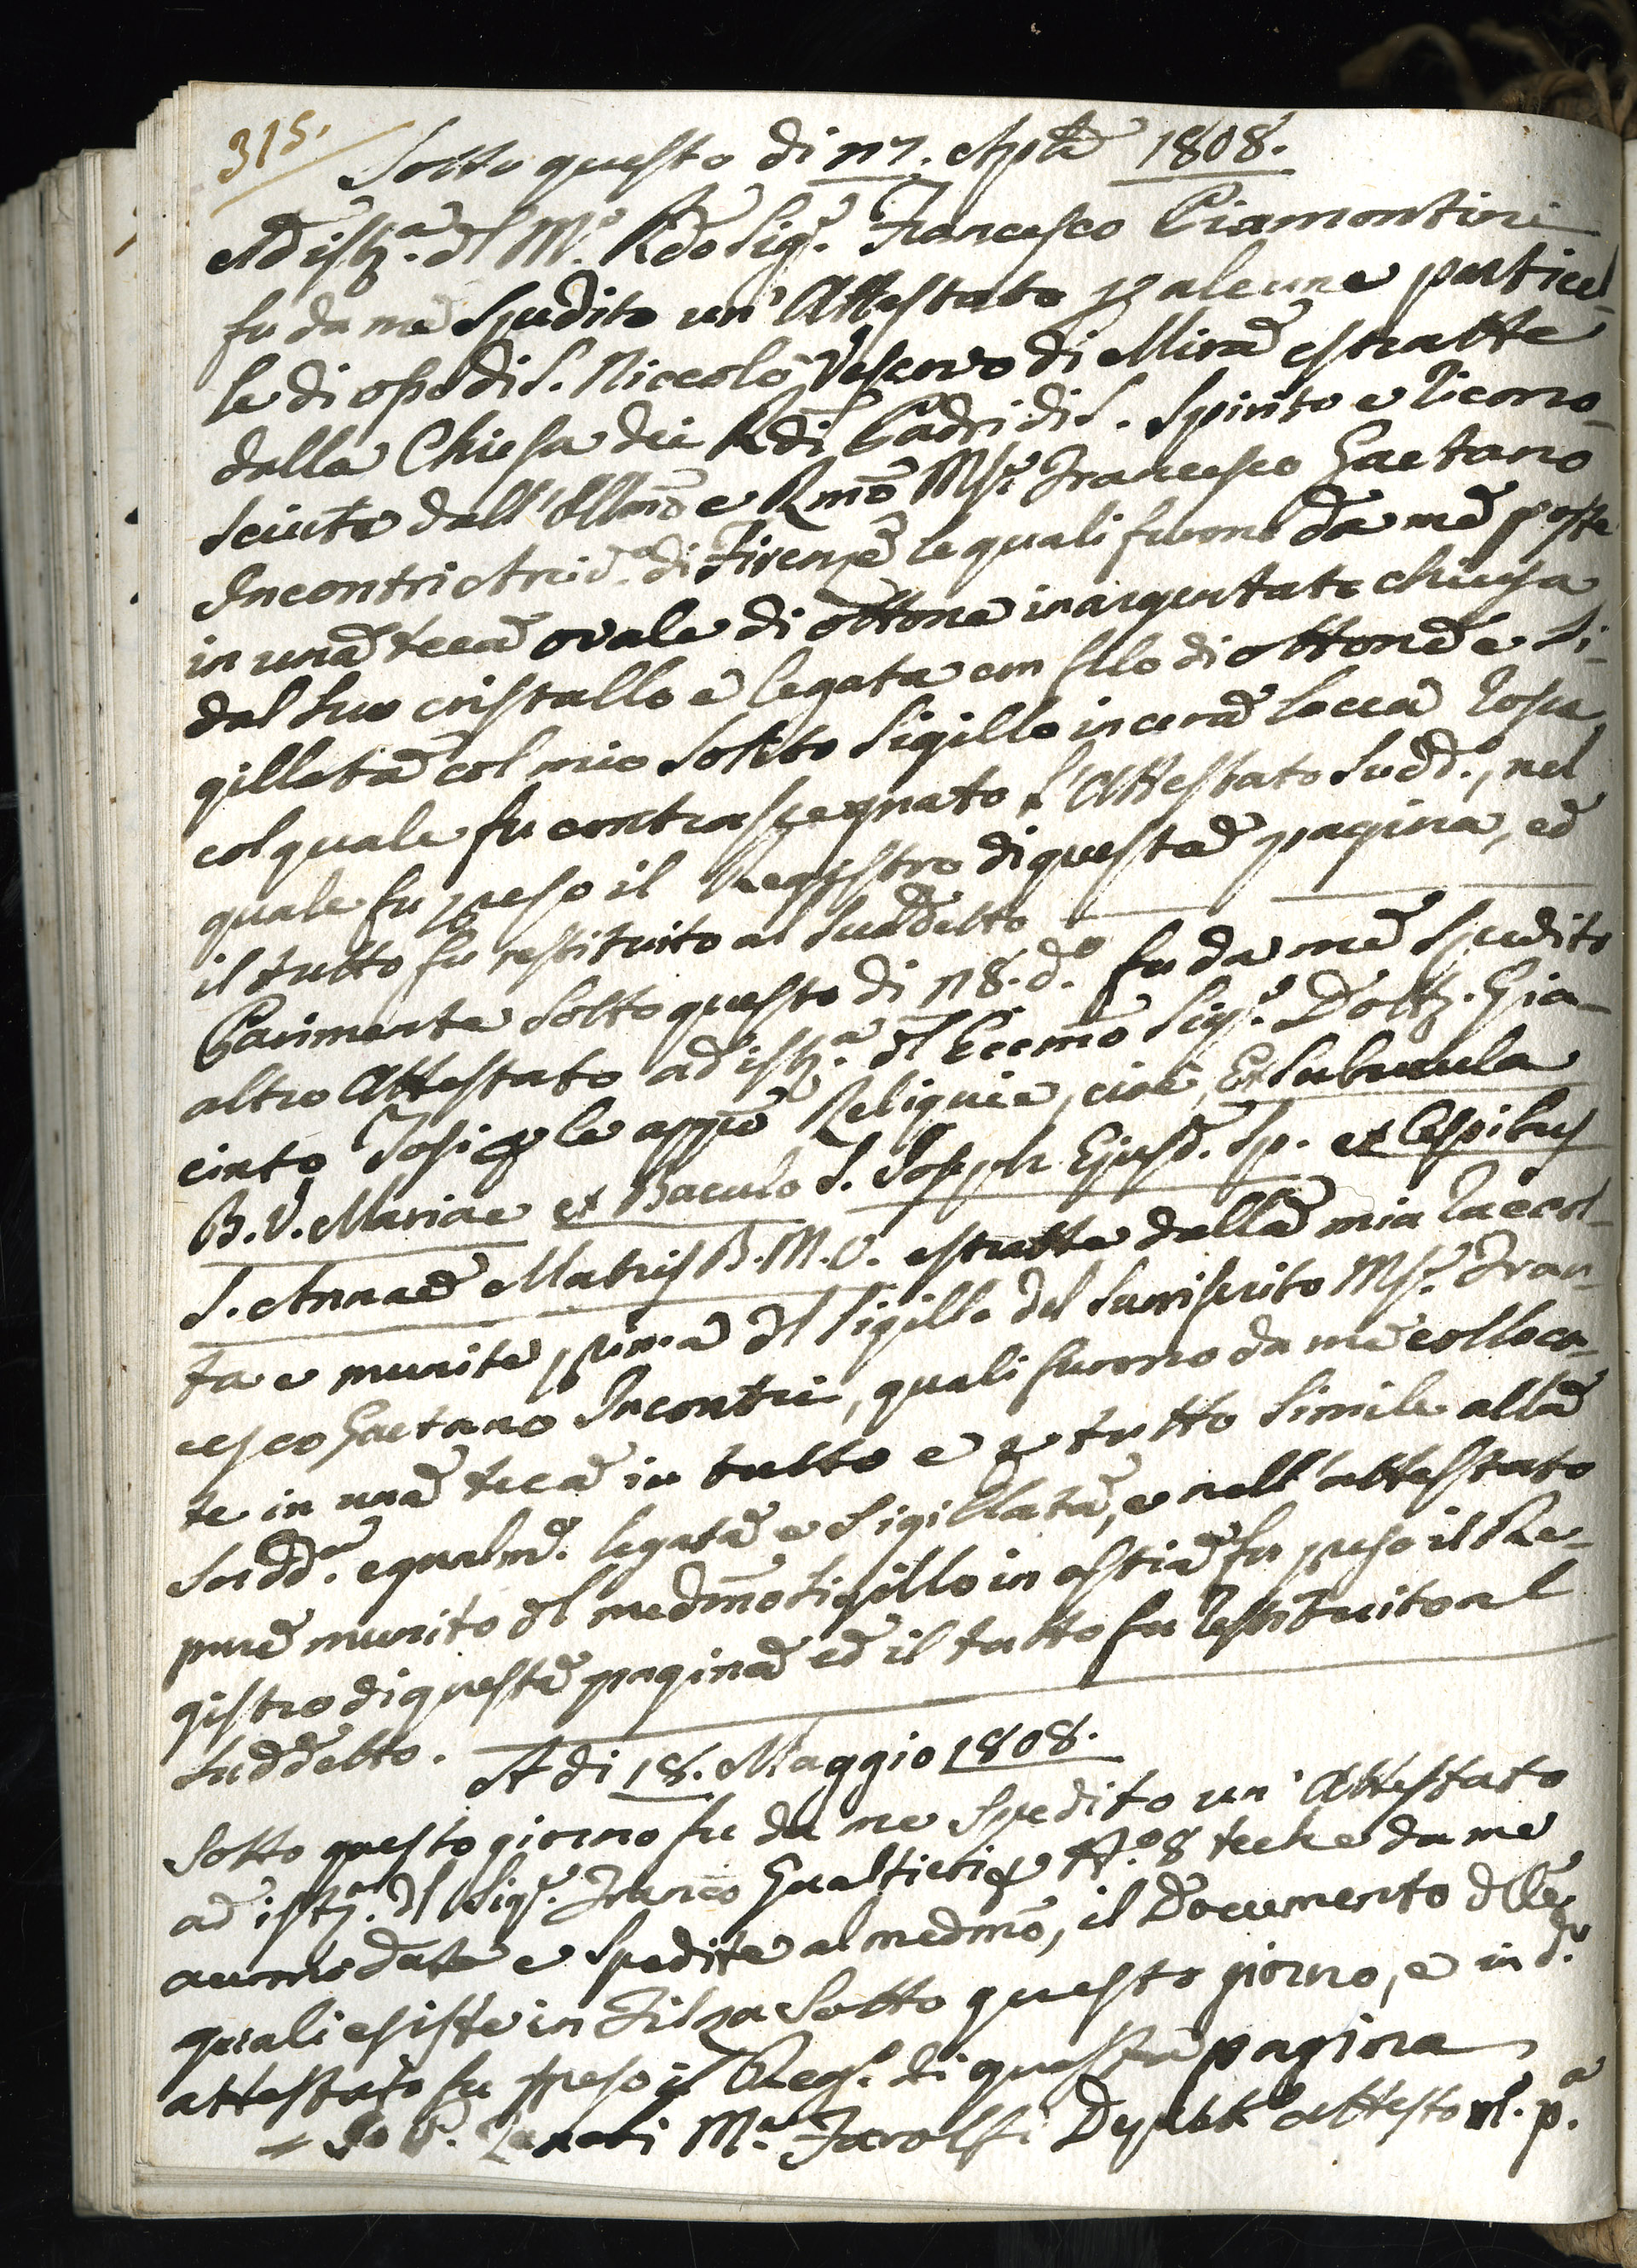 315.
Sotto questo di 17. Aple 1808.
Ad istza. dl M.o Rdo Sigr. Francesco Piamontini
fu da me spedito un' Attestato p alcune particel-
le di ossa di S. Niccolò Vescovo di Mira estratte
dalla Chiesa dei Rdi Padri di S. Spirito e ricono-
sciute dall' Illmo e Rmo Msr. Francesco Gaetano
Incontri Arciv.o di Firenze le quali furono da me poste
in una teca ovale di ottone inargentato chiusa
dal suo cristallo e legata con filo di ottone e si-
gillata col mio solito sigillo in cera lacca rossa
col quale fu contrassegnato l'Attestato sudd.o, nel
quale fu preso il Registro di questa pagina, ed
il tutto fu restituito al suddetto
Parimente sotto questo di 18. d.o fu da me spedito
altro Attestato ad istza. dl Eccmo Sigr. Dottr. Gia-
cinto Tosi p le appo Reliquie, cioè, Ex Subucula
B. V. Mariae et Baculo S. Joseph Ejusd. Sp. et Cespitus
S. Annae Matris B. M. V. estratte dalla mia raccol-
ta e munite prima dl sigillo del surriferito Msr. Fran-
cesco Gaetano Incontri, quali furono da me colloca-
te in una teca in tutto e p tutto simile alla
sudd.a egualme. legata e sigillata, e nell' attestato
pure munito dl medmo sigillo in ostia fu preso il Re-
gistro di questa pagina ed il tutto fu restituito al
suddetto.
A di 18. Maggio 1808.
Sotto questo giorno fu da me spedito un' Attestato
ad istza. dl Sigr. Franco Gualtieri p N.o 8 teche da me
accomodate e spedite al medmo, il Documento dlle
quali esiste in Filza sotto questo giorno, e in d.o
attestato fu preso il Reg.o di questa pagina
= Io P. M.a Deputto Attesto m. p.a